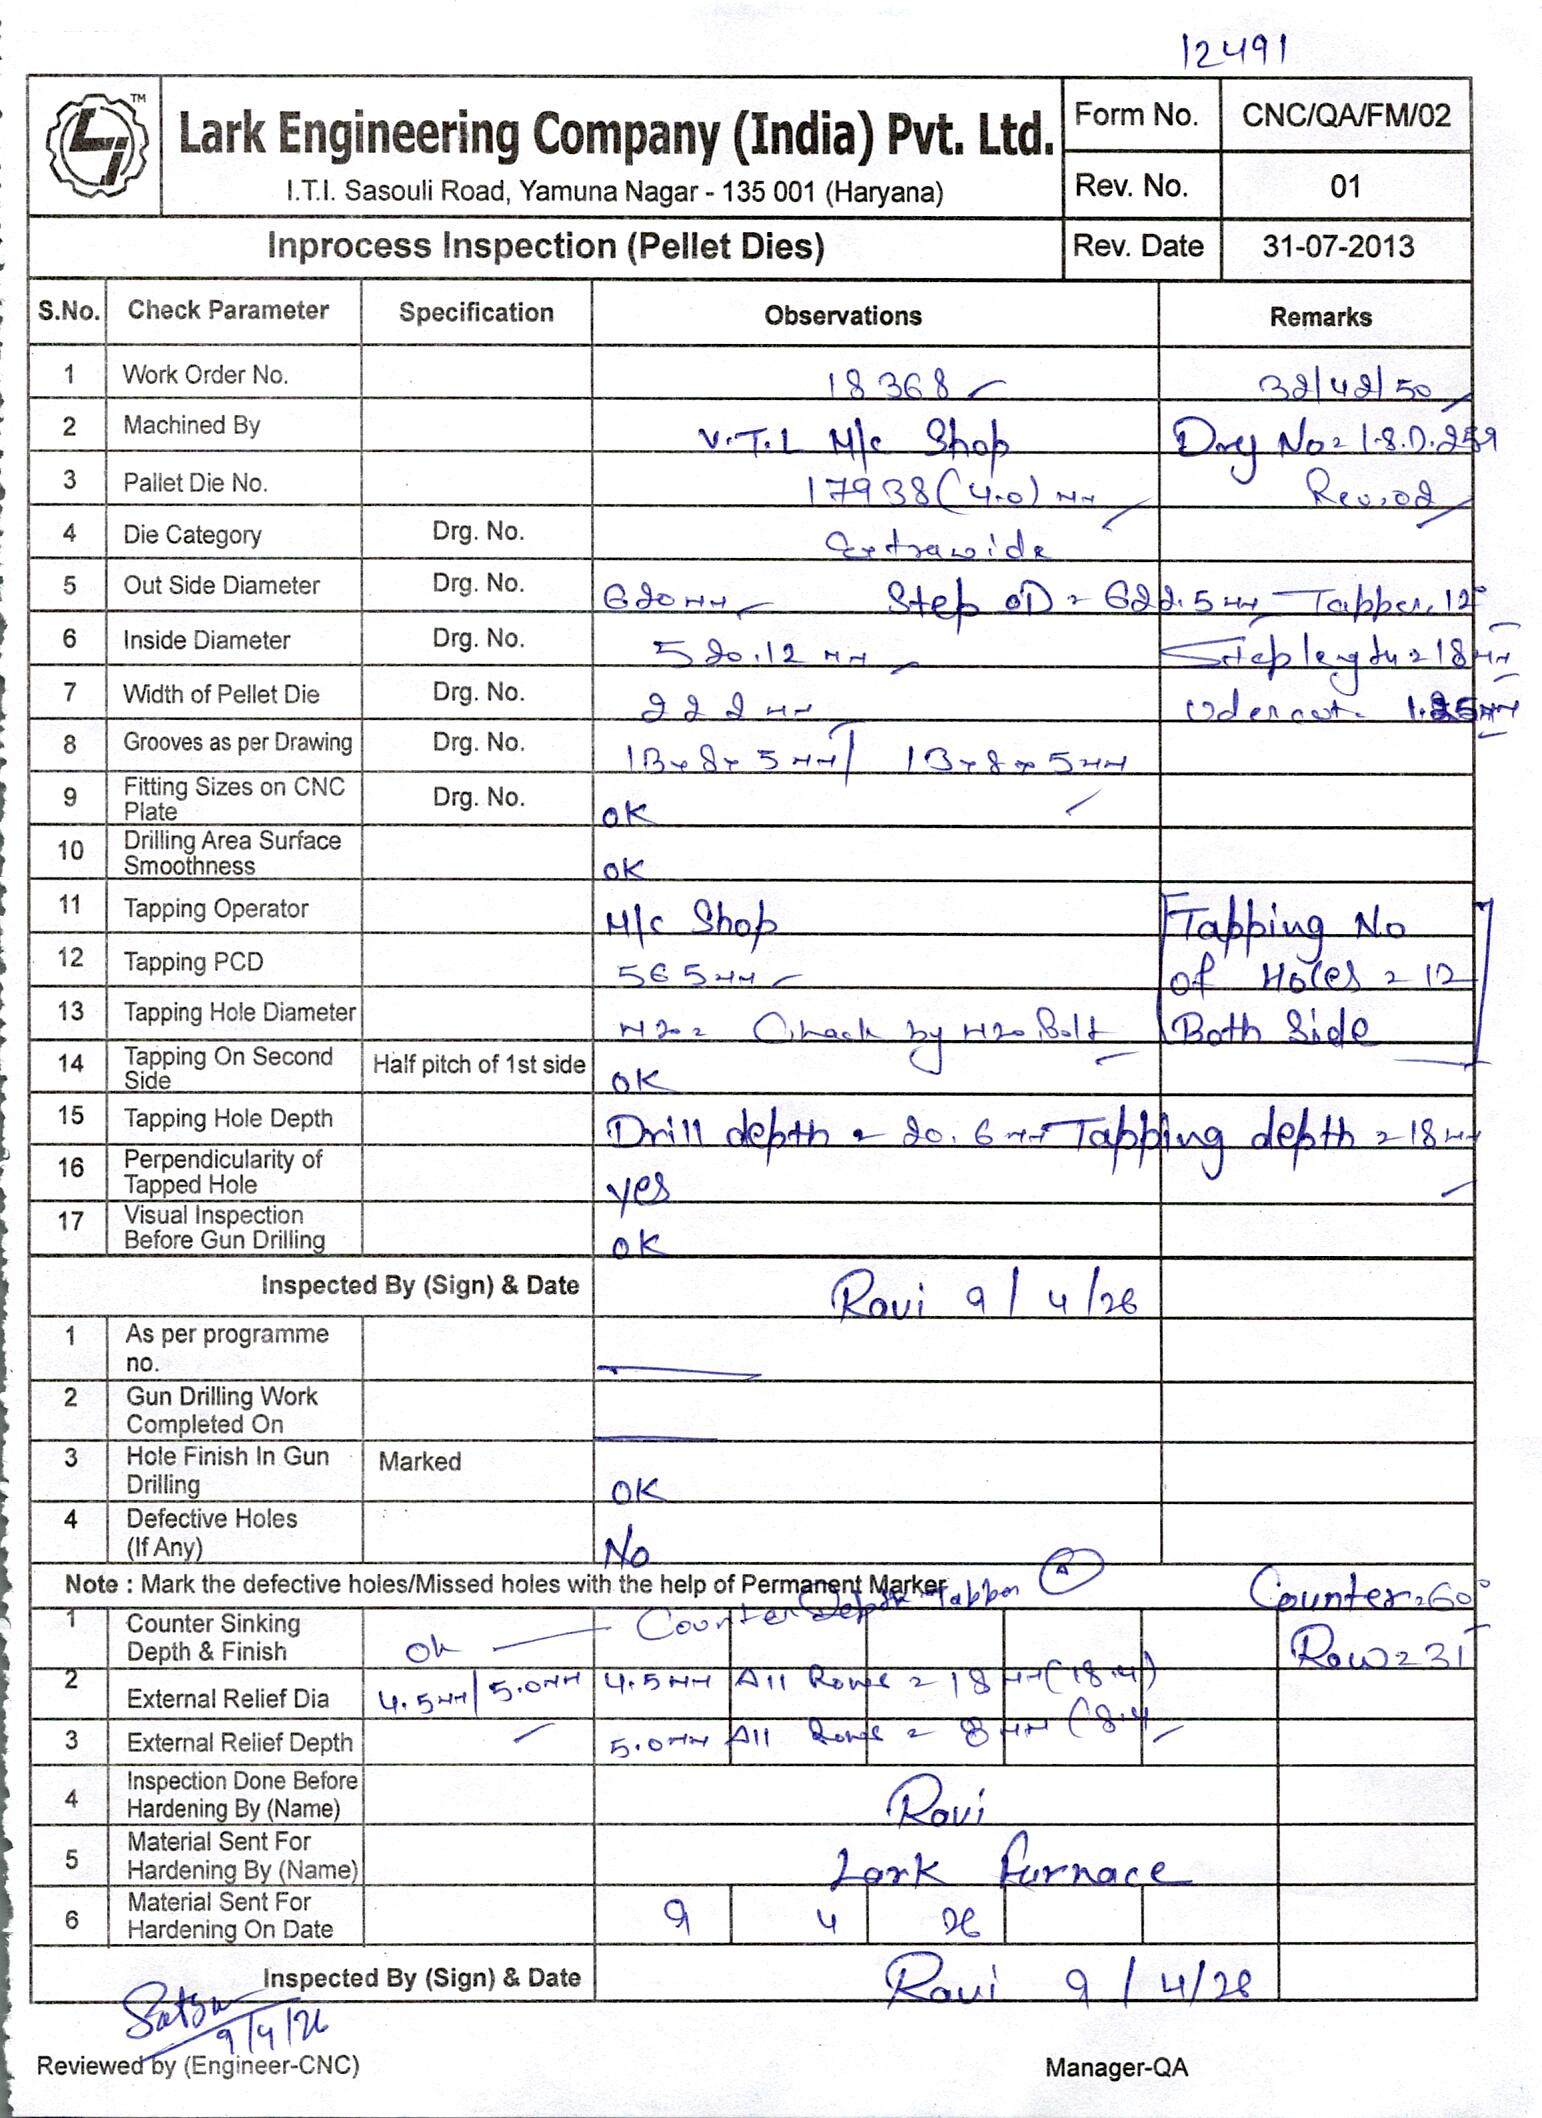 12491
TM
Lark Engineering Company (India) Pvt. Ltd.
I.T.I. Sasouli Road, Yamuna Nagar - 135 001 (Haryana)
Form No. CNC/QA/FM/02
Rev. No. 01
Inprocess Inspection (Pellet Dies) Rev. Date 31-07-2013
S.No. Check Parameter Specification Observations Remarks
1 Work Order No. 18368 32/42/50
2 Machined By V.T.L M/c Shop Drg No=
3 Pallet Die No. 17938(4.0) mm
4 Die Category Drg. No. Extrawide
5 Out Side Diameter Drg. No. 620mm Step OD = 622.5mm Tapper. 12°
6 Inside Diameter Drg. No. 520.12 mm Step length = 18mm
7 Width of Pellet Die Drg. No. 222 mm Udercut 1.25mm
8 Grooves as per Drawing Drg. No. 13x8x5mm 13x8x5mm
9 Fitting Sizes on CNC Plate Drg. No. OK
10 Drilling Area Surface Smoothness OK
11 Tapping Operator M/c Shop Tapping No
12 Tapping PCD 565mm of Holes = 12
13 Tapping Hole Diameter M20 = Check by M20 Bolt Both Side
14 Tapping On Second Side Half pitch of 1st side OK
15 Tapping Hole Depth Drill depth = 20.6mm Tapping depth = 18mm
16 Perpendicularity of Tapped Hole yes
17 Visual Inspection Before Gun Drilling OK
Inspected By (Sign) & Date Ravi 9/4/26
1 As per programme no.
2 Gun Drilling Work Completed On
3 Hole Finish In Gun Drilling Marked OK
4 Defective Holes (If Any) No
Note : Mark the defective holes/Missed holes with the help of Permanent Marker Counter=60°
1 Counter Sinking Depth & Finish Ok Counter Depth Tapper Row=31
2 External Relief Dia 4.5mm/5.0mm 4.5mm All Rows = 18mm(18.4)
3 External Relief Depth 5.0mm All Rows = 8mm (8.4
4 Inspection Done Before Hardening By (Name) Ravi
5 Material Sent For Hardening By (Name) Lark Furnace
6 Material Sent For Hardening On Date 9 4 26
Inspected By (Sign) & Date Ravi 9/4/26
9/4/26
Reviewed by (Engineer-CNC) Manager-QA